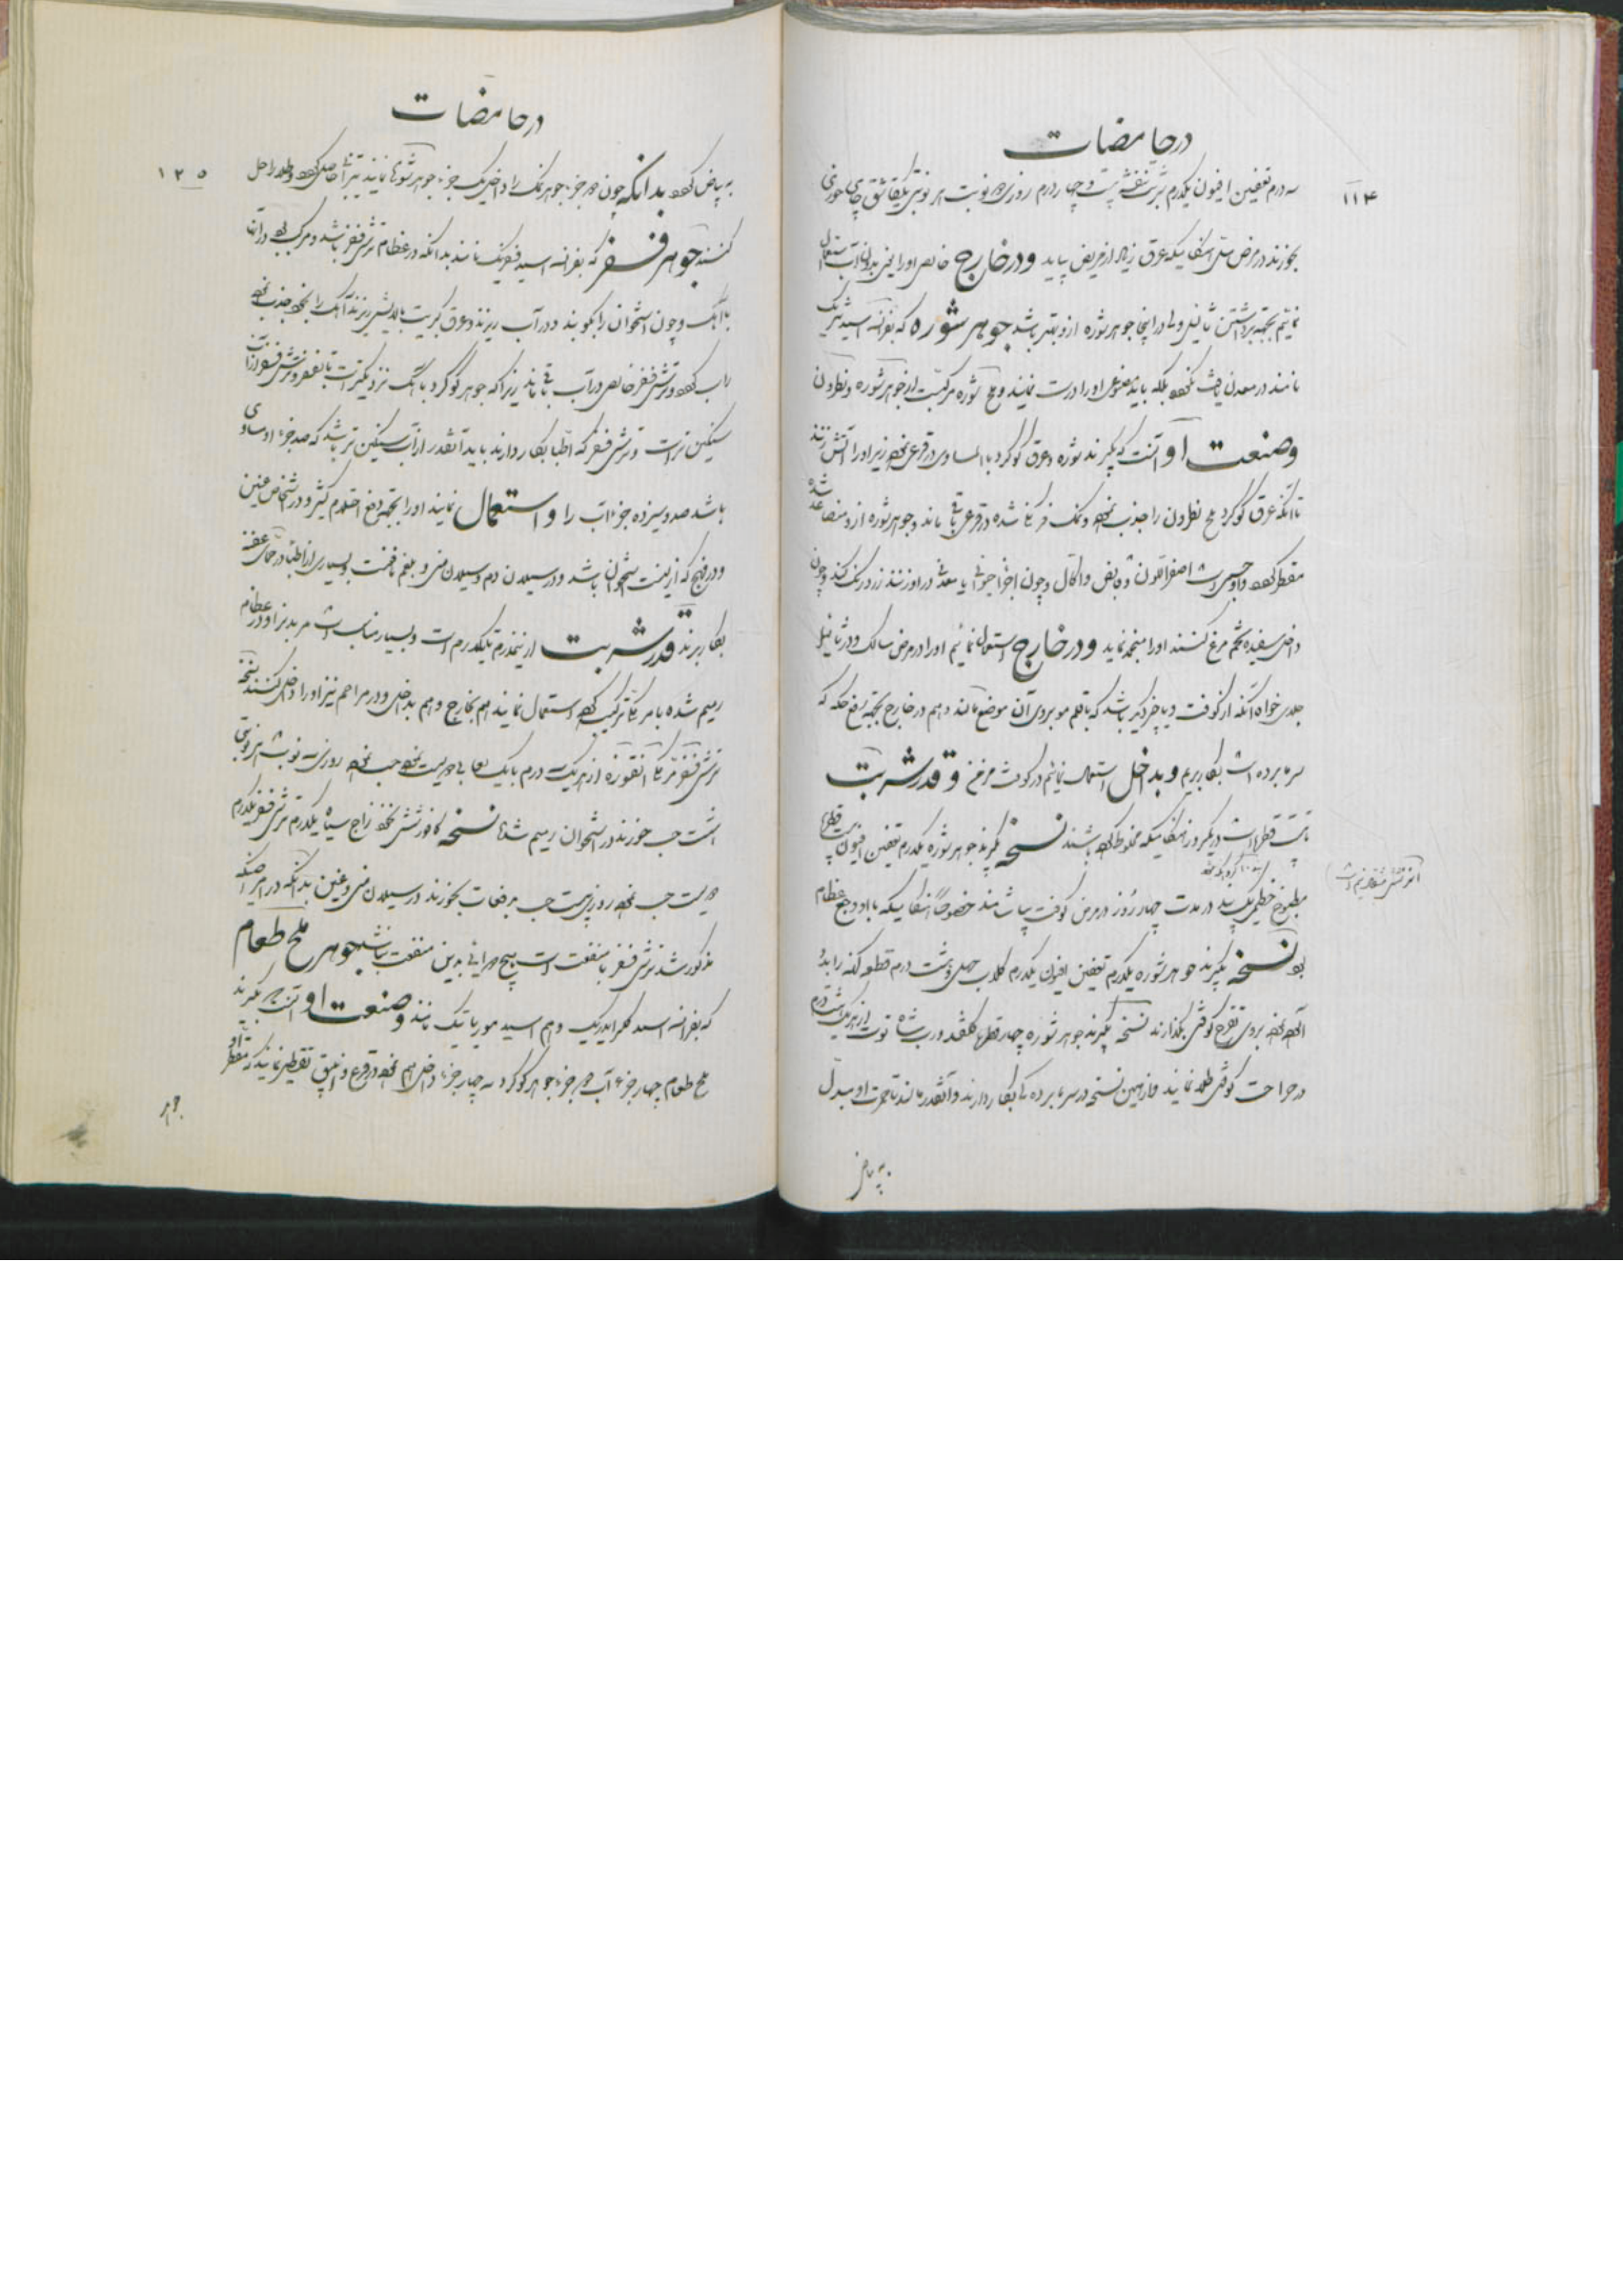 در حامضات
۱۱۴
سه درم تعفین افیون یکدرم شربت بنفشه بیست و چهار درم روزی دو نوبت هر نوبتی یکقاشق چای خوری
بخورند در مرض سل هنگامیکه عرق زیاد از مریض بیاید و در خارج خالص او را یعنی بدون آب استعمال
نمائیم بجهة برداشتن ثآلیل ولی در اینجا جوهر شوره ازو بهتر باشد جوهر شوره که بفرانسه اسید نتریک
نامند در معدن یافت نشود بلکه باید مصنوعی او را درست نمایند و ملح شوره مرکبست از جوهر شوره و نطرون
وصنعت او آنست که بگیرند شوره و عرق گوگرد بالمساوی در قرعی نموده زیر او را آتش زنند
تا آنکه عرق گوگرد ملح نطرون را جذب نموده و نمک فرنگی شده در قرع باقی ماند و جوهر شوره ازو متصاعد شده
مقطر گردد و او جسمی است اصفر اللون و قابض و اکال و چون
داخل سفیده تخم مرغ کنند او را منجمد نماید و در خارج استعمال نمائیم او را در مرض سالک و در ثآلیل
جلدی خواه آنکه از کوفت و یا چیز دیگر باشد که با قلم مو بروی آن موضع مالند و هم در خارج بجهة رفع حکه که
سرما برده است بکار بریم و بداخل استعمال نمائیم در کوفت مزمن و قدر شربت
بیست قطره است در یکروز هنگامیکه مخلوط کرده باشند نسخه بگیرند جوهر شوره یکدرم تعفین افیون بیست قطره
مطبوخ خطمی یک در مدت چهار روز در مرض کوفت بیاشامند خصوصاً هنگامیکه با او وجع عظام
بود نسخه بگیرند جوهر شوره یکدرم تعفین افیون یکدرم گلاب چهل و هشت درم قطعه کهنه را بدو
آلوده نموده بروی قرح کوفتی بگذارند نسخه بگیرند جوهر شوره چهار قطره گلقند و رب شاه توت از هر یک هشت درم
در جراحت کوفتی طلا نمایند و از همین نسخه در سرما برده گی بکار دارند و آنقدر مالند تا حمرت او مبدل
به بیاض
در حامضات
۱۲۵
به بیاض گردد بدانکه چون دو جزء جوهر نمک را داخل یک جزء جوهر شوره نمایند تیزآب حاصل گردد و طلا را حل
کنند جوهر فسفر که بفرانسه اسید فسفریک نامند بدانکه در عظام ترشی فسفر باشد و مرکب بود در آنها
با آهک و چون استخوان را بکوبند و در آب ریزند و عرق کبریت بالایش ریزند آهک را بخود جذب نموده
راسب گردد و ترشی فسفر خالص در آب باقی ماند زیرا که جوهر گوگرد با آهک نزدیکتر است تا بفسفر و ترشی فسفر از آب
سنگین تر است و ترشی فسفر که اطبا بکار دارند باید آنقدر از آب سنگین تر باشد که صد جزء او مساوی
باشد صد و سیزده جزء آب را و استعمال نمایند او را بجهة دفع احتلام کثیر و در شخاص عنین
و در فلج که از لینت ستخوان باشد و در سیلان دم و سیلان منی و بلغم نافعست و بسیاری از اطبا در حمای عفنه
بکار برند قدر شربت از نیمدرم تا یکدرم است و بسیار مناسب است مر بدنرا و در عظام
ریم شده با مر مکی ترکیب کرده استعمال نمایند هم بخارج و هم بداخل و در مراهم نیز او را داخل کنند نسخه
ترشی فسفر مر مکی انقوزه از هر یک سه درم با یک لعابی دویست حب نموده روزی سه نوبت هر نوبتی
هشت حب خورند در استخوان ریم شده نسخه کافور شش نخود زاج سیاه یکدرم ترشی فسفر یکدرم
دویست حب نموده روزی بیست حب بدفعات بخورند در سیلان منی و عنین بدانکه در امراضیکه
مذکور شد ترشی فسفر با منفعت است هیچ دوائی بدین منفعت نباشد جوهر ملح طعام
که بفرانسه اسید کلرایدریک و هم اسید موریاتیک نامند وصنعت او آنست که بگیرند
ملح طعام چهار جزء آب دو جزء جوهر گوگرد سه چهار جزء داخل هم نموده در قرع و انبیق تقطیر نمایند که مقطر او